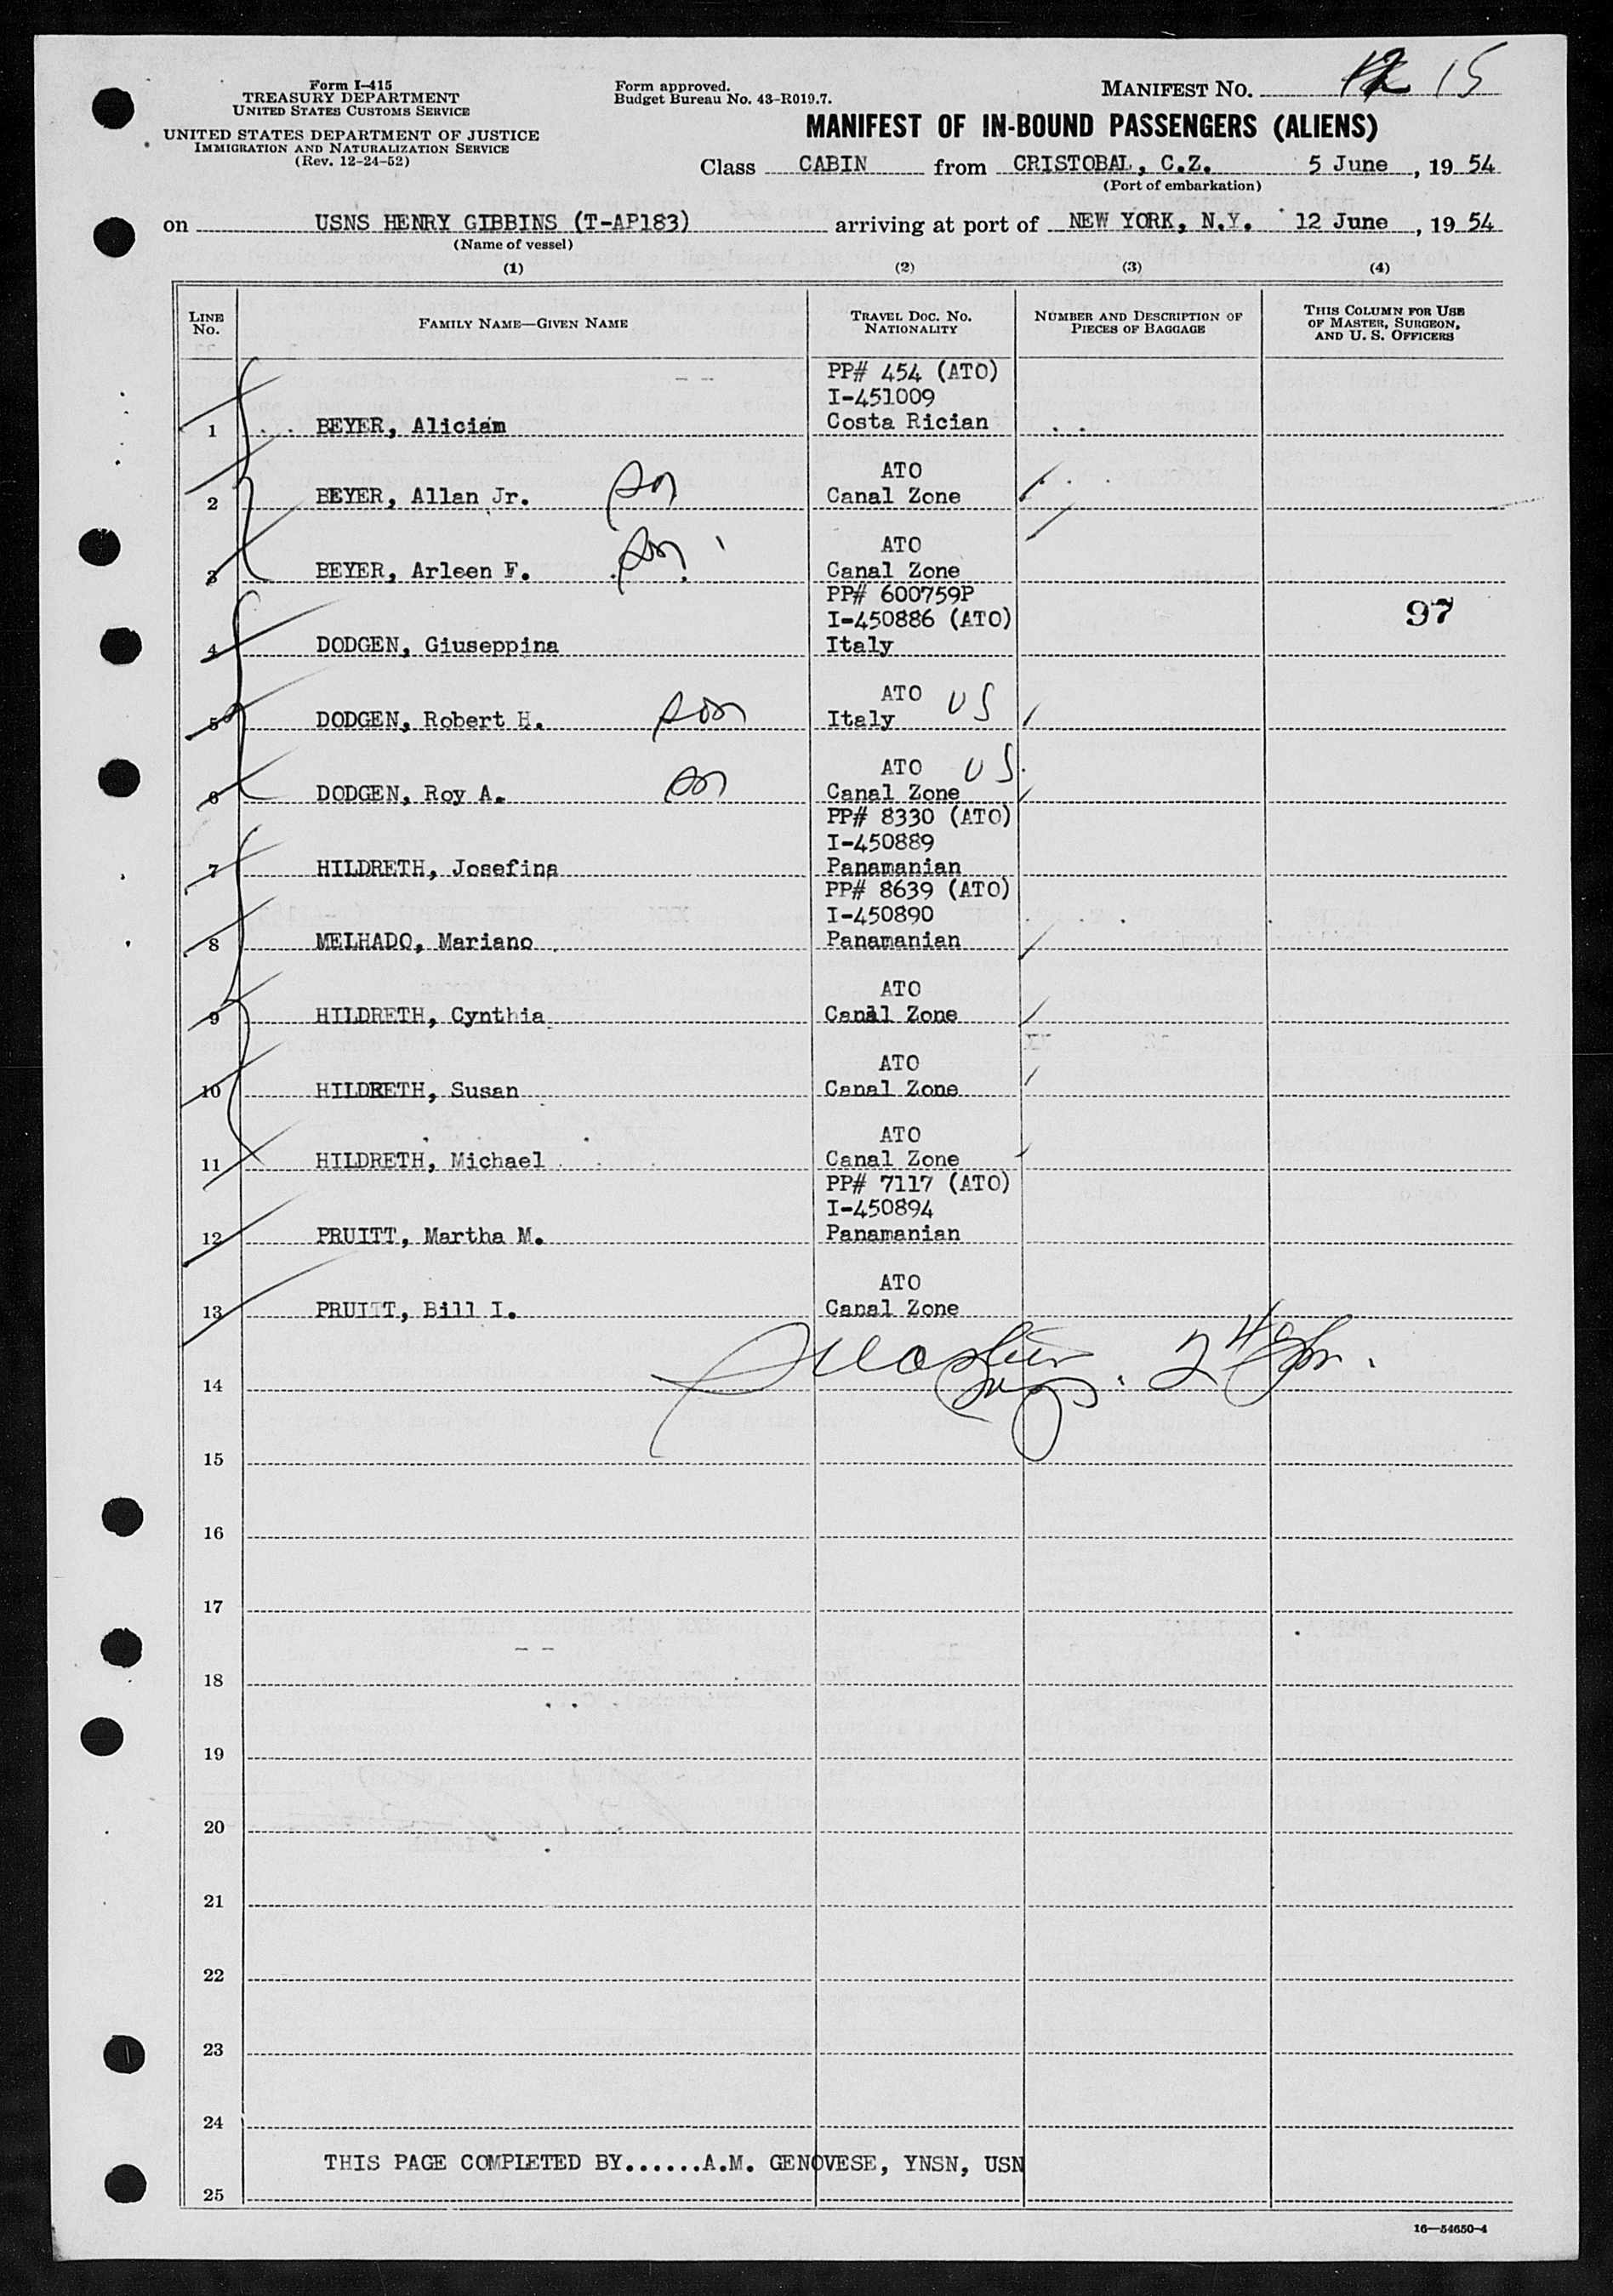 Form I-415
TREASURY DEPARTMENT
UNITED STATES CUSTOMS SERVICE
UNITED STATES DEPARTMENT OF JUSTICE
IMMIGRATION AND NATURALIZATION SERVICE
(Rev. 12-24-52)
Form approved.
Budget Bureau No. 43-R019.7.
MANIFEST No. 12 15
MANIFEST OF IN-BOUND PASSENGERS (ALIENS)
Class CABIN from CRISTOBAL, C.Z. 5 June, 19 54
(Port of embarkation)
on USNS HENRY GIBBINS (T-AP183) arriving at port of NEW YORK, N.Y. 12 June, 19 54
(Name of vessel)
(1) (2) (3) (4)
LINE No. FAMILY NAME—GIVEN NAME TRAVEL DOC. NO. NATIONALITY NUMBER AND DESCRIPTION OF PIECES OF BAGGAGE THIS COLUMN FOR USE OF MASTER, SURGEON, AND U. S. OFFICERS
PP# 454 (ATO)
I-451009
1 BEYER, Aliciam Costa Rician
ATO
2 BEYER, Allan Jr. son Canal Zone
ATO
3 BEYER, Arleen F. son Canal Zone
PP# 600759P
I-450886 (ATO) 97
4 DODGEN, Giuseppina Italy
ATO US
5 DODGEN, Robert H. son Italy
ATO US
6 DODGEN, Roy A. son Canal Zone
PP# 8330 (ATO)
I-450889
7 HILDRETH, Josefina Panamanian
PP# 8639 (ATO)
I-450890
8 MELHADO, Mariano Panamanian
ATO
9 HILDRETH, Cynthia Canal Zone
ATO
10 HILDRETH, Susan Canal Zone
ATO
11 HILDRETH, Michael Canal Zone
PP# 7117 (ATO)
I-450894
12 PRUITT, Martha M. Panamanian
ATO
13 PRUITT, Bill I. Canal Zone
14
15
16
17
18
19
20
21
22
23
24
THIS PAGE COMPLETED BY......A.M. GENOVESE, YNSN, USN
25
16—54650-4